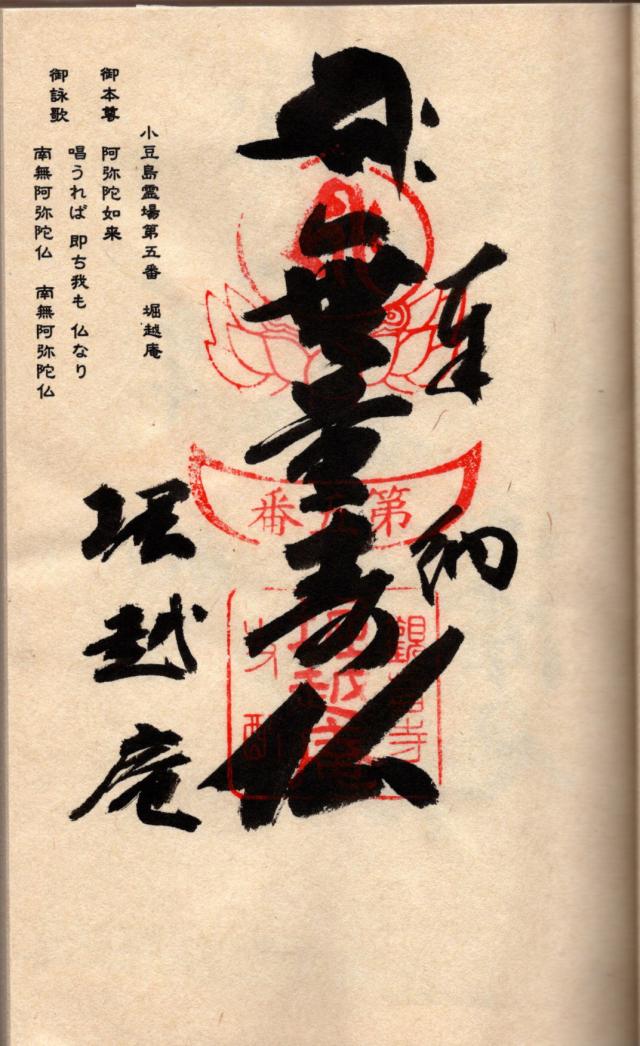 奉納
無量寿仏
堀越庵
第五番
觀音寺
堀越庵
支配
小豆島霊場第五番 堀越庵
御本尊 阿弥陀如来
御詠歌 唱うれば 即ち我も 仏なり
南無阿弥陀仏 南無阿弥陀仏